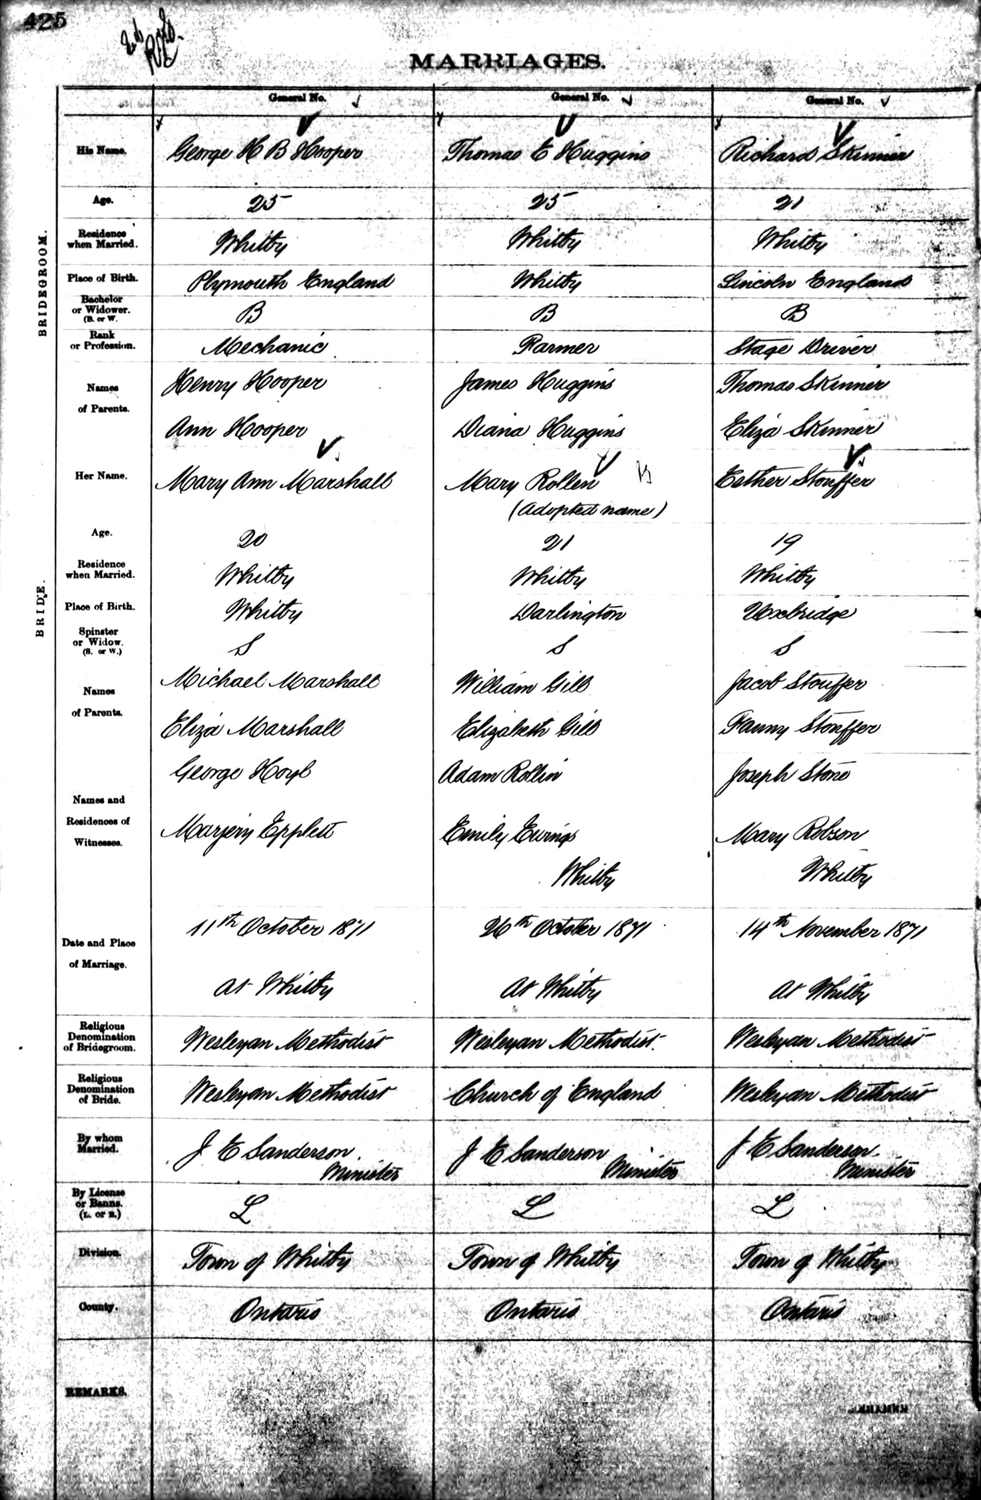 425
MARRIAGES.
General No. General No. General No.
BRIDEGROOM.
His Name. George H B Hooper Thomas E Huggins Richard Skinner
Age. 25 25 21
Residence when Married. Whitby Whitby Whitby
Place of Birth. Plymouth England Whitby Lincoln England
Bachelor or Widower. (B. or W. B B B
Rank or Profession. Mechanic Farmer Stage Driver
Names of Parents. Henry Hooper James Huggins Thomas Skinner
Ann Hooper Diana Huggins Eliza Skinner
BRIDE.
Her Name. Mary Ann Marshall Mary Rollin Esther Stouffer
(Adopted name)
Age. 20 21 19
Residence when Married. Whitby Whitby Whitby
Place of Birth. Whitby Darlington Uxbridge
Spinster or Widow. (S. or W.) S S S
Names of Parents. Michael Marshall William Gill Jacob Stouffer
Eliza Marshall Elizabeth Gill Fanny Stouffer
George Hoyl Adam Rollin Joseph Stone
Names and Residences of Witnesses. Marjery Epplett Emily Ewings Mary Robson
Whitby Whitby
Date and Place of Marriage. 11th October 1871 26th October 1871 14th November 1871
At Whitby At Whitby At Whitby
Religious Denomination of Bridegroom. Wesleyan Methodist Wesleyan Methodist. Wesleyan Methodist
Religious Denomination of Bride. Wesleyan Methodist Church of England Wesleyan Methodist
By whom Married. J E Sanderson. J E Sanderson J E Sanderson.
Minister Minister Minister
By License or Banns. (L. or B.) L L L
Division. Town of Whitby Town of Whitby Town of Whitby
County. Ontario Ontario Ontario
REMARKS.